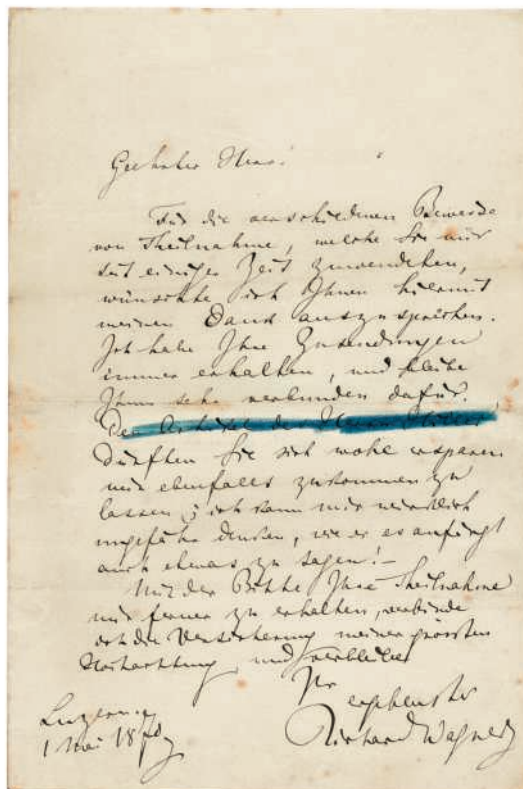 Geehrter Herr!
Für die verschiedenen Beweise
von Theilnahme, welche Sie mir
seit einiger Zeit zuwendeten,
wünschte ich Ihnen hiermit
meinen Dank auszusprechen.
Ich habe Ihre Zusendungen
immer erhalten, und bleibe
Ihnen sehr verbunden dafür.
Den Artikel des Herrn Hiller
dürften Sie sich wohl ersparen
mir ebenfalls zukommen zu
lassen; ich kann mir wirklich
ungefähr denken, wie er es anfängt
auch etwas zu sagen! –
Mit der Bitte, Ihre Theilnahme
mir ferner zu erhalten, verbinde
ich die Versicherung meiner grössten
Hochachtung, und verbleibe
Ihr
ergebenster
Richard Wagner
Luzern
1 Mai 1870